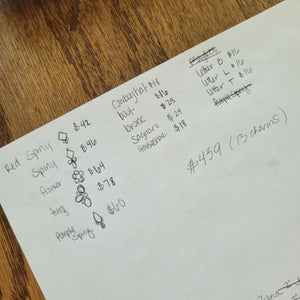 Red Spiny $42
Spiny $46
flower $64
$78
Purple Spiny $60
Cowboy hat $18
boot $16
bronc $25
Saguaro $24
Horseshoe $18
letter D $16
letter L $16
letter T $16
$439 (13 charms)